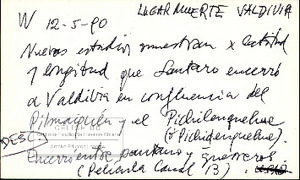 W 12-5-90 LUGAR MUERTE VALDIVIA
Nuevos estudios muestran x latitud
y longitud que Lautaro encerró
a Valdivia en confluencia del
Pilmaiquén y el Pichilenquehue
(o Pichidenquehue).
DESC.
Encerró entre pantano y guerreros
(Película Canal 13).